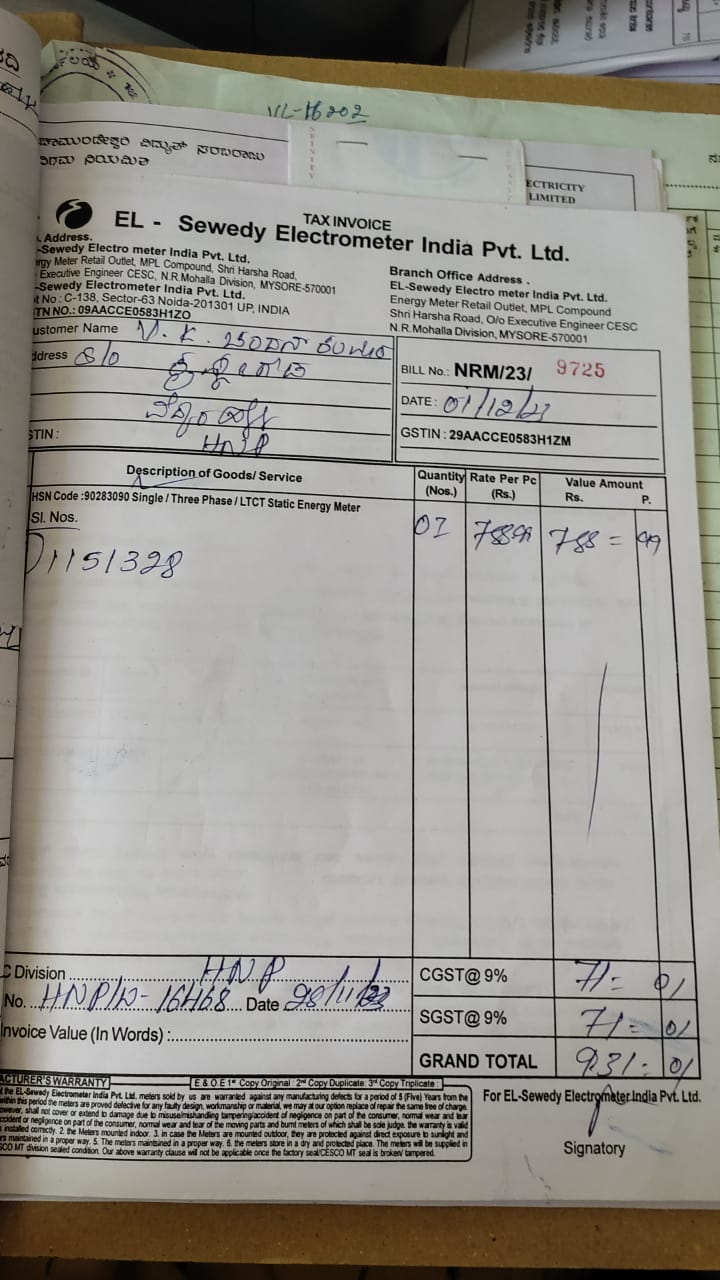 VL-16202
ಚಾಮುಂಡೇಶ್ವರಿ ವಿದ್ಯುತ್ ಸರಬರಾಜು
ನಿಗಮ ನಿಯಮಿತ
ECTRICITY
LIMITED
TAX INVOICE
EL - Sewedy Electrometer India Pvt. Ltd.
. Address.
-Sewedy Electro meter India Pvt. Ltd.
rgy Meter Retail Outlet, MPL Compound, Shri Harsha Road,
Executive Engineer CESC, N.R.Mohalla Division, MYSORE-570001
-Sewedy Electrometer India Pvt. Ltd.
t No : C-138, Sector-63 Noida-201301 UP, INDIA
TN NO.: 09AACCE0583H1ZO
Branch Office Address .
EL-Sewedy Electro meter India Pvt. Ltd.
Energy Meter Retail Outlet, MPL Compound
Shri Harsha Road, O/o Executive Engineer CESC
N.R.Mohalla Division, MYSORE-570001
ustomer Name V. K.
ddress S/o
HNP
STIN :
BILL No.: NRM/23/ 9725
DATE : 01/12/23
GSTIN : 29AACCE0583H1ZM
Description of Goods/ Service
Quantity (Nos.)
Rate Per Pc (Rs.)
Value Amount
Rs. P.
HSN Code :90283090 Single / Three Phase / LTCT Static Energy Meter
Sl. Nos.
01 788.99 788 = 99
1151328
C Division HNP
No. HNP/W-16468 Date 28/11/23
Invoice Value (In Words) :
CGST@ 9% 71 = 01
SGST@ 9% 71 = 01
GRAND TOTAL 931 = 01
ACTURER'S WARRANTY
E & O.E 1st Copy Original : 2nd Copy Duplicate: 3rd Copy Triplicate :
the EL-Sewedy Electrometer India Pvt. Ltd. meters sold by us are warranted against any manufacturing defects for a period of 5 (Five) Years from the
within this period the meters are proved defective for any faulty design, workmanship or material, we may at our option replace of repair the same free of charge.
owever, shall not cover or extend to damage due to misuse/mishandling tampering/accident of negligence on part of the consumer, normal wear and tear
ccident or negligence on part of the consumer, normal wear and tear of the moving parts and burnt meters of which shall be sole judge. the warranty is valid
installed correctly. 2. the Meters mounted indoor. 3. in case the Meters are mounted outdoor, they are protected against direct exposure to sunlight and
rs maintained in a proper way. 5. The meters maintained in a proper way. 6. the meters store in a dry and protected place. The meters will be supplied in
SCO MT division sealed condition. Our above warranty clause will not be applicable once the factory seal/CESCO MT seal is broken/ tampered.
For EL-Sewedy Electrometer India Pvt. Ltd.
Signatory